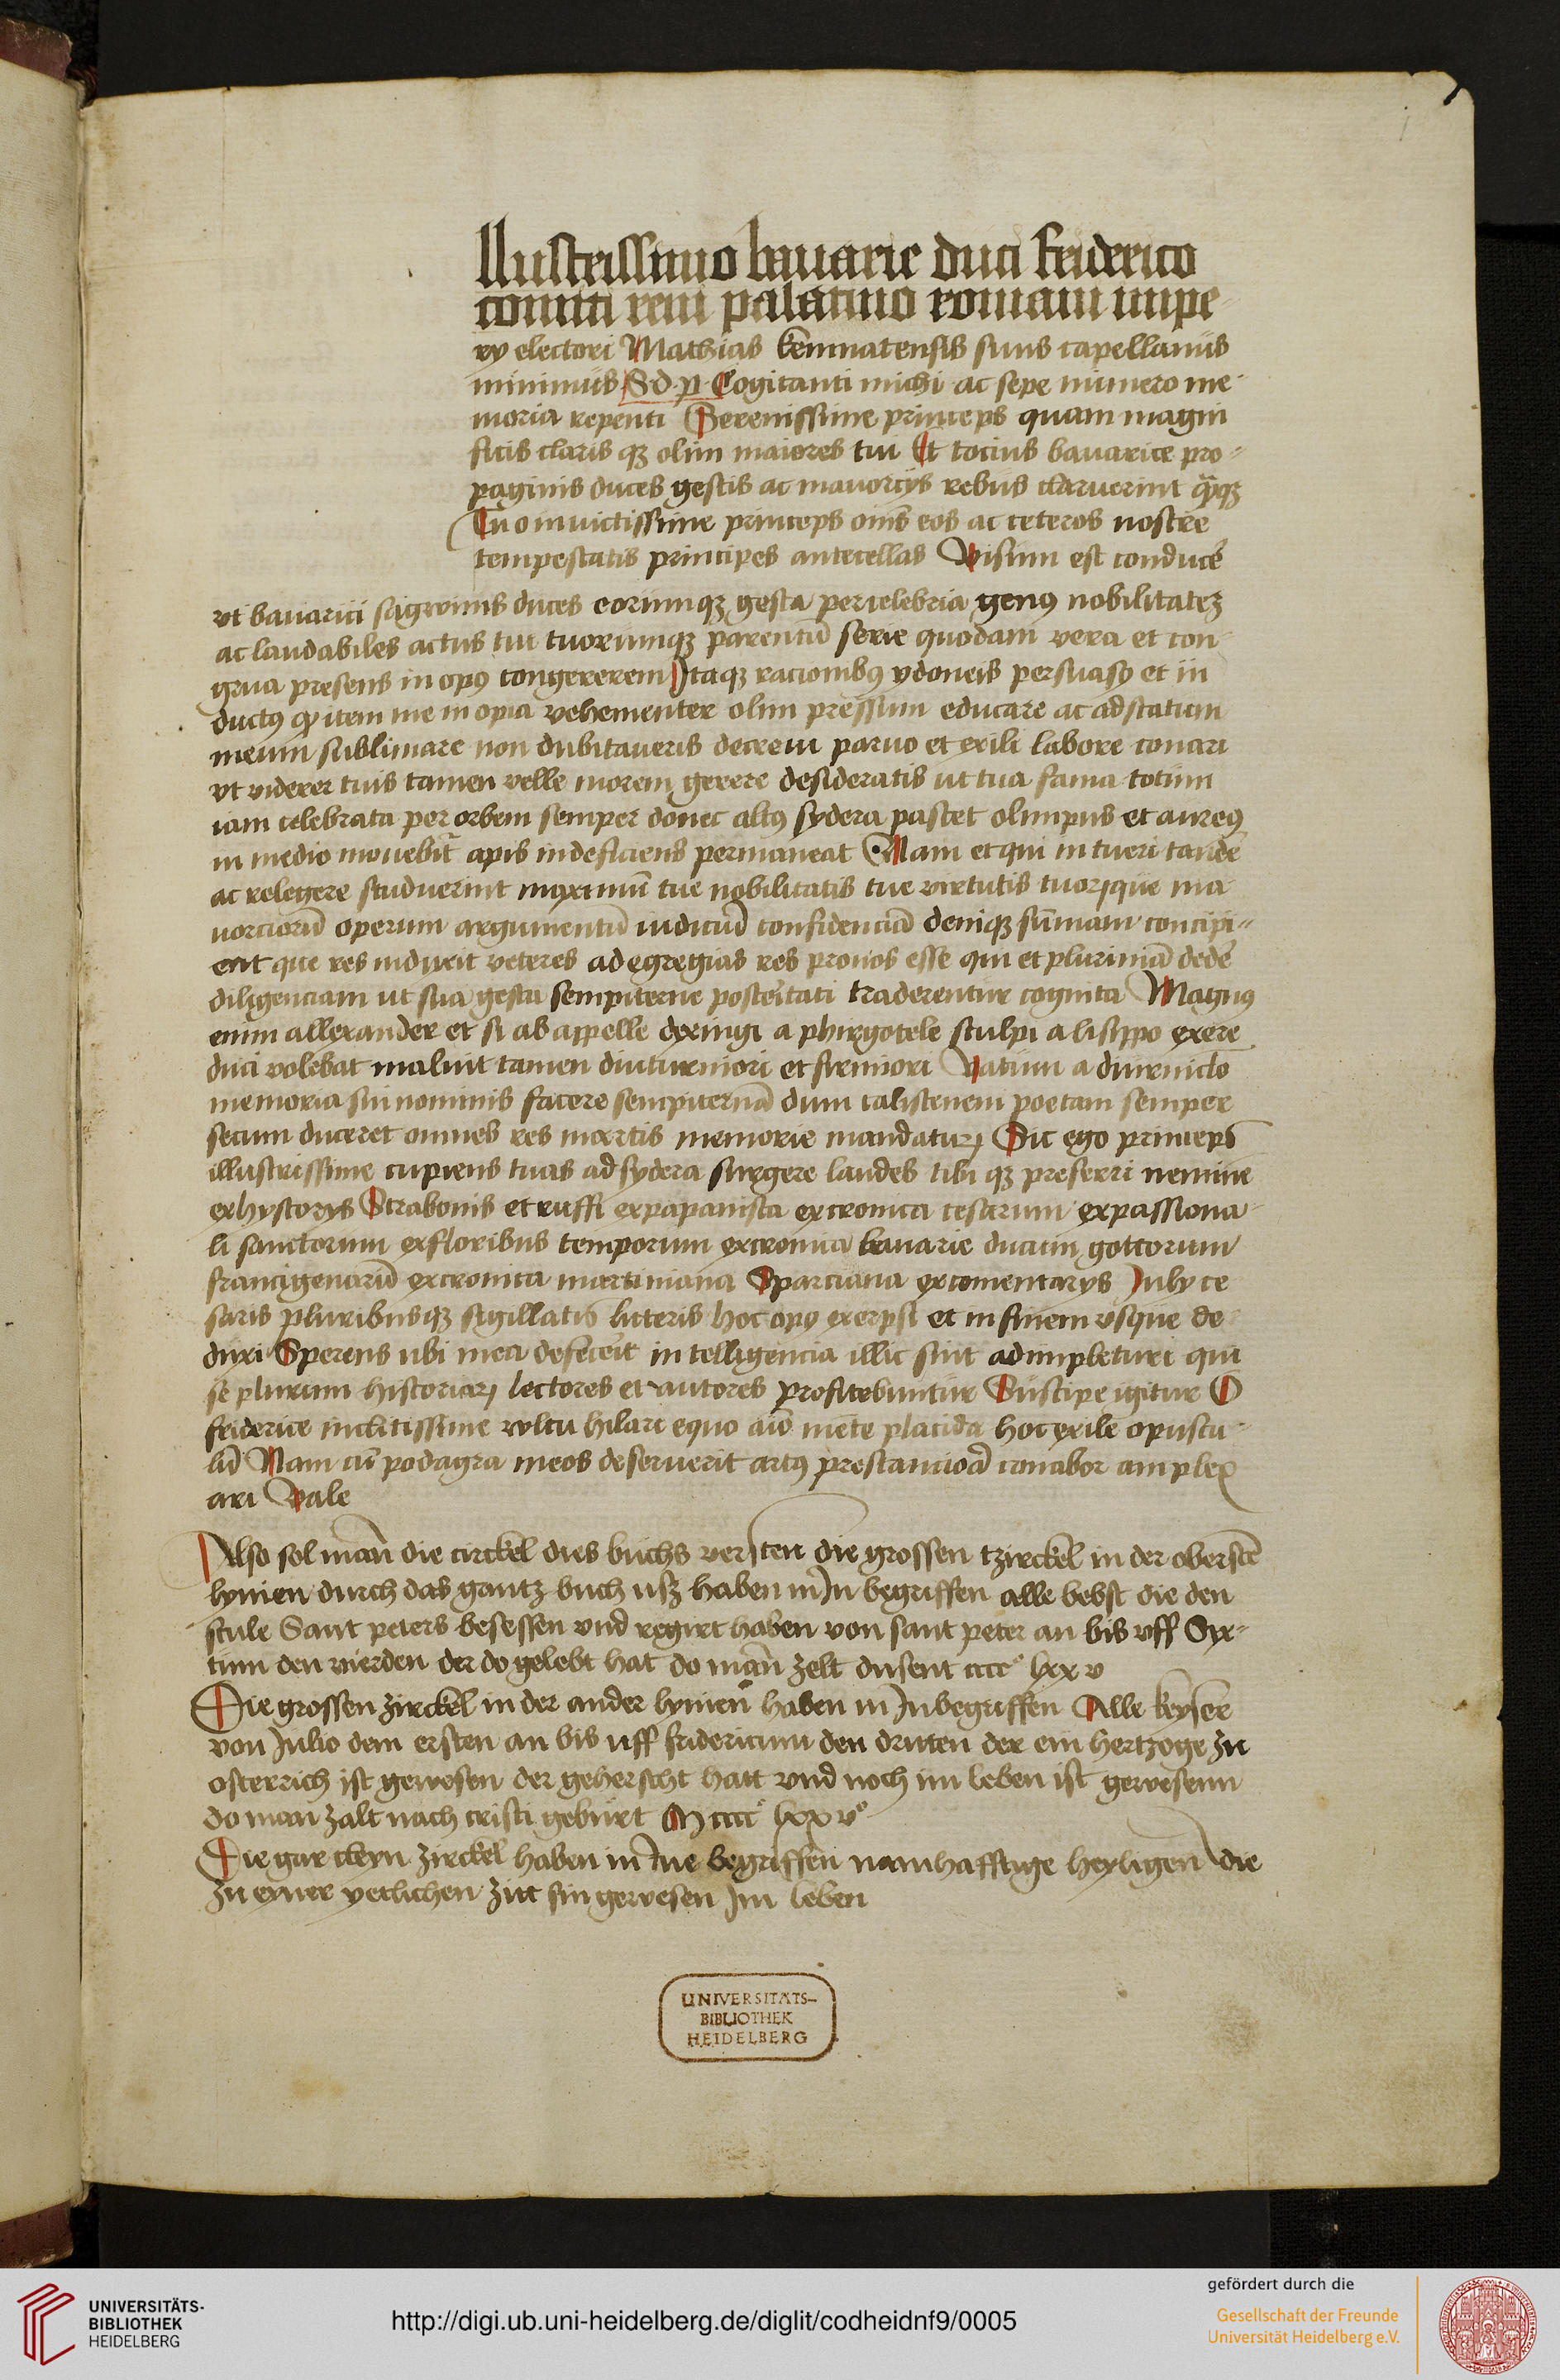 llustrissimo bauarie duci friderico
comiti reni palatino romani impe
ry electori Mathias kemnatensis suus capellanus
minimus S.d.p. Cogitanti michi ac sepe numero me-
moria repenti Serenissime princeps quam magni
ficis claris qȝ olim maiores tui Et tocius bauarice pro-
paginis duces gestis ac mauorcijs rebus claruerint
Tuo inuictissime princeps om̄s eos ac ceteros nostre
tempestatis principes antecellas Visum est conducē
vt bauarici duces eorumqȝ gesta percelebria genꝰ nobilitateȝ
ac laudabiles actus tui tuorumqȝ parentū serie quodam vera et con
grua presens in opꝰ congererem Itaqȝ racionibꝰ ydoneis persuasꝰ et in
ductꝰ ꝙ item me in opia vehementer olim pressum educare ac ad statum
meum sublimare non dubitaueris decreui paruo et exili labore conari
vt viderer tuis tamen velle morem gerere desideratis ut tua fama totum
iam celebrata per orbem semper donec altꝰ sydera pascet olimpus et aureꝰ
in medio mouebit᷑ apis indeficiens permaneat Nam et qui intueri tandē
ac relegere studuerint maximū tue nobilitatis tue virtutis tuorꝫque ma
uorciorū operum argumentū iudiciū confidenciā deniqȝ sūmam concipi-
ent que res induxit veteres ad egregias res pronos esse qui et plurimā dedē
diligenciam ut sua gesta sempiterne posteritati traderentur cognita Magnꝰ
enim allexander et si ab appelle depingi a phirgotele sculpi a lisippo exere
duci volebat maluit tamen diuturniori et firmiori vatum a diurniclo
memoria sui nominis facere sempiternā dum calistenem poetam semper
secum duceret omnes res martis memorie mandaturꝫ Sic ego princeps
illustrissime cupiens tuas ad sydera surgere laudes tibi qȝ preferri neminē
ex hystorijs Strabonis et ruffi ex papanista ex cronica cesarum ex passiona-
li sanctorum ex floribus temporum ex cronica bauarie ducum gottorum
francigenarū ex cronica martiniana Sparciana ex comentarijs July ce
saris pluribusqȝ sigillatis litteris hoc opꝰ exerpsi et in finem vsque de
duxi Sperens ubi mea defecerit intelligencia illic sint adimpleturi qui
se plurium historiarꝫ lectores et autores profitebuntur Suscipe igitur O
friderice inclitissime vultu hilari equo aīo mēte placida hoc exile opuscu-
lū Nam cū podagra meos deseruerit artꝰ prestancioā conabor amplex
ari Vale
Also sol man die circkel dis buchs versten die grossen tzirckel in der oberstē
lynien durch das gantz buch uß haben in In begriffen alle bebst die den
stule Sant peters besessen vnd regirt haben von sant peter an bis vff Syx-
tum den vierden der do gelebt hat do man zelt dusent ccccº lxxv
Die grossen zirckel in der ander lynien haben in Inbegriffen Alle keyser
von Julio dem ersten an bis uff fridericum den dritten der ein hertzoge zu
osterrich ist gewesen der geherscht hatt vnd noch im leben ist gewesenn
do man zalt nach cristi geburt Mccccº lxxvº
Die gar cleyn zirckel haben in Ine begriffen namhafftige heyligen die
zu eyner yetlichen zitt sin gewesen Im leben
UNIVERSITÄTS-
BIBLIOTHEK
HEIDELBERG
UNIVERSITÄTS-
BIBLIOTHEK
HEIDELBERG
http://digi.ub.uni-heidelberg.de/diglit/codheidnf9/0005
gefördert durch die
Gesellschaft der Freunde
Universität Heidelberg e.V.